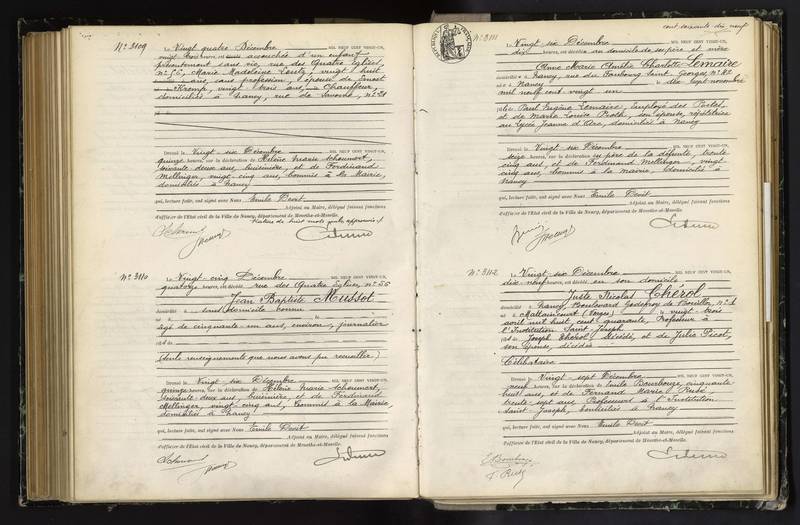 N° 3109
Le Vingt quatre Décembre MIL NEUF CENT VINGT-UN,
vingt trois heures, est accouchée d'un enfant
présentement sans vie, rue des Quatre Eglises,
N° 56, Marie Madeleine, vingt huit
ans, sans profession, épouse de Ernest
Kremp, vingt trois ans, Chauffeur,
domiciliés à Nancy, rue de Savoie, N° 21
Dressé le Vingt six Décembre MIL NEUF CENT VINGT-UN,
quinze heures, sur la déclaration de Héloïse Marie
soixante deux ans, cuisinière, et de Ferdinand
Mellinger, vingt cinq ans, Commis à la Mairie,
domiciliés à Nancy
qui, lecture faite, ont signé avec Nous Emile Devit
Adjoint au Maire, délégué faisant fonctions
d'officier de l'Etat civil de la Ville de Nancy, département de Meurthe-et-Moselle.
Rature de huit mots nuls approuvée
N° 3110
Le Vingt cinq Décembre MIL NEUF CENT VINGT-UN,
quatorze heures, est décédé rue des Quatre Eglises, N° 56
Jean Baptiste Mussot
domicilié à sans domicile connu
né à
âgé de cinquante un ans, environ, journalier
fils de
(seuls renseignements que nous avons pu recueillir)
Dressé le Vingt six Décembre MIL NEUF CENT VINGT-UN,
quinze heures, sur la déclaration de Héloïse Marie
soixante deux ans, cuisinière, et de Ferdinand
Mellinger, vingt cinq ans, Commis à la Mairie
domiciliés à Nancy
qui, lecture faite, ont signé avec Nous Emile Devit
Adjoint au Maire, délégué faisant fonctions
d'officier de l'Etat civil de la Ville de Nancy, département de Meurthe-et-Moselle.
cent soixante dix neuf
N° 3111
Le Vingt six Décembre MIL NEUF CENT VINGT-UN,
dix heures, est décédée au domicile de ses père et mère
Anne Marie Amélie Charlotte Lemaire
domiciliée à Nancy, rue du Faubourg Saint Georges, N°
née à Nancy le dix sept novembre
mil neuf cent vingt un
fille Paul Eugène Lemaire, Employé des Postes
et de Marie Louise Proth, son épouse, répétitrice
au Lycée Jeanne d'Arc, domiciliés à Nancy
Dressé le Vingt six Décembre MIL NEUF CENT VINGT-UN,
seize heures, sur la déclaration du père de la défunte, trente
cinq ans, et de Ferdinand Mellinger, vingt
cinq ans, Commis à la mairie, domiciliés à
Nancy
qui, lecture faite, ont signé avec Nous Emile Devit
Adjoint au Maire, délégué faisant fonctions
d'officier de l'Etat civil de la Ville de Nancy, département de Meurthe-et-Moselle.
N° 3112
Le Vingt six Décembre MIL NEUF CENT VINGT-UN,
dix neuf heures, est décédé en son domicile
Juste Nicolas Chérol
domicilié à Nancy, Boulevard Godefroy de Bouillon, N° 1
né à Mattaincourt (Vosges) le vingt trois
avril mil huit cent quarante, Professeur à
l'Institution Saint Joseph
fils de Joseph Chérol, décédé, et de Julie Picot,
son épouse, décédée
Célibataire
Dressé le Vingt sept Décembre MIL NEUF CENT VINGT-UN,
neuf heures, sur la déclaration de Emile Bourbouze, cinquante
huit ans, et de Fernand Marie
trente sept ans, Professeurs à l'Institution
Saint Joseph, domiciliés à Nancy
qui, lecture faite, ont signé avec Nous Emile Devit
Adjoint au Maire, délégué faisant fonctions
d'officier de l'Etat civil de la Ville de Nancy, département de Meurthe-et-Moselle.